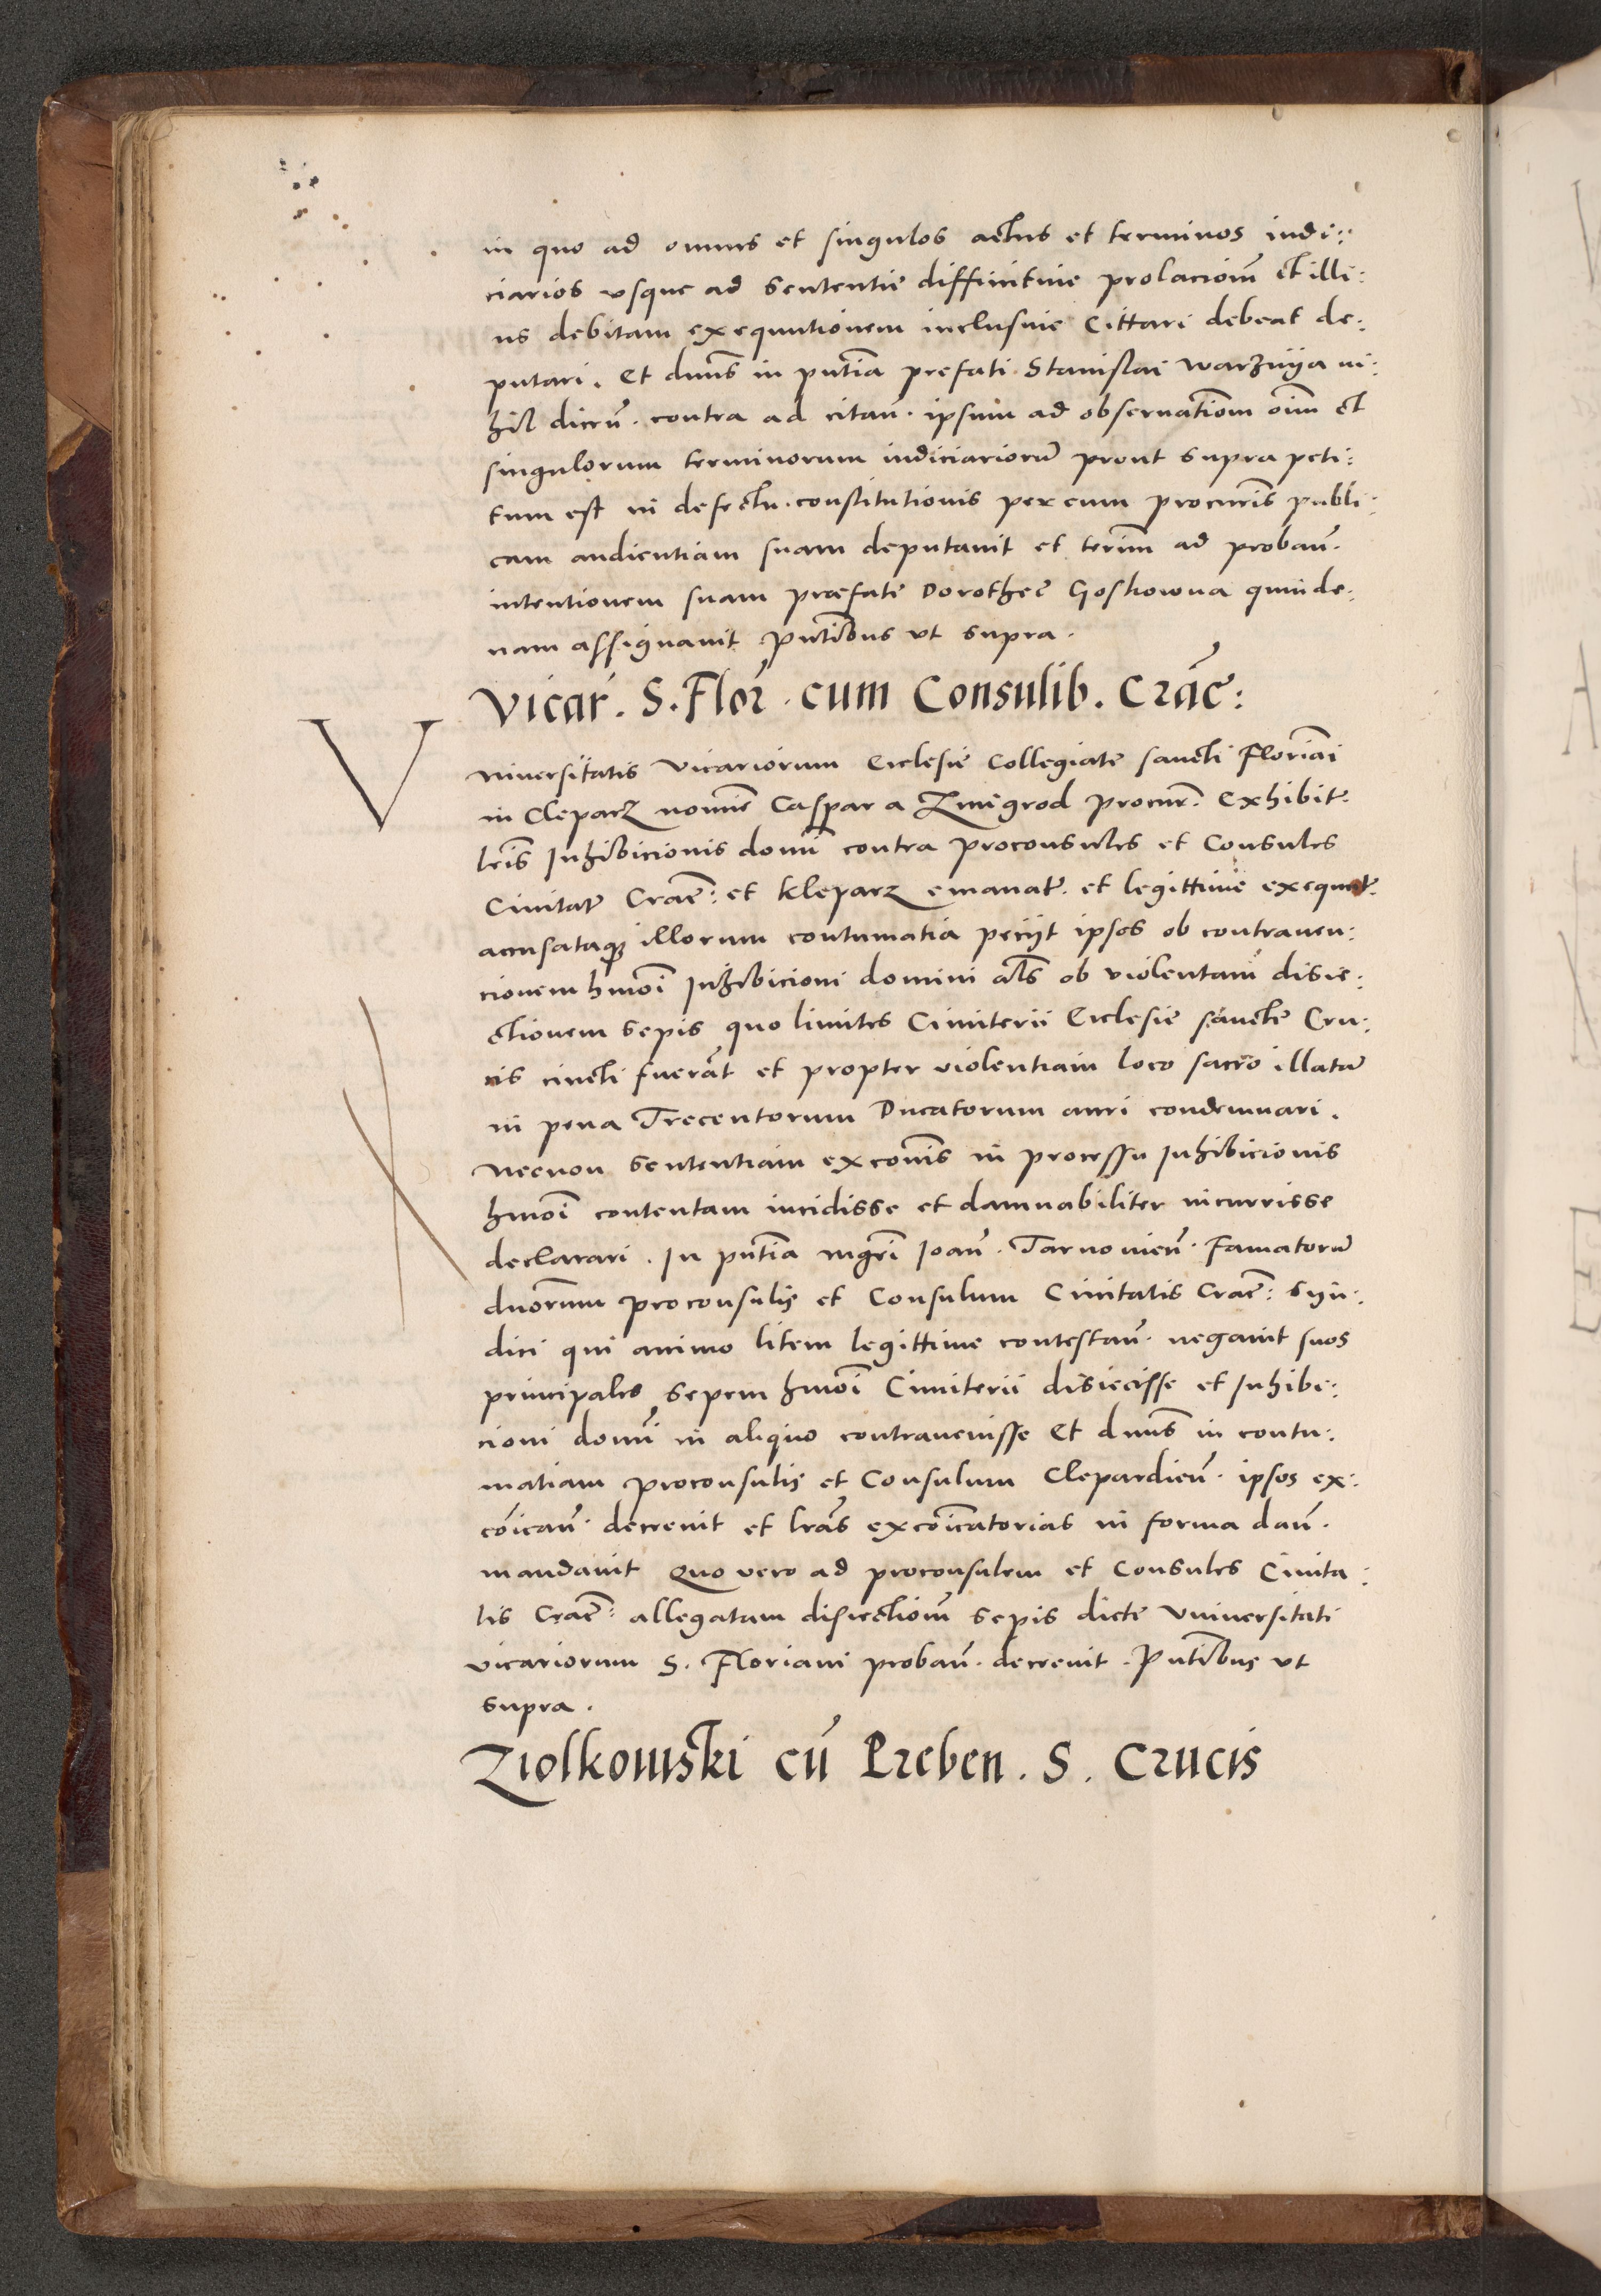 in quo ad omnes et singulos actus et terminos iudi:
ciarios vsque ad sententie diffinitiue prolacionẽ et illi:
us debitam exequutionem inclusiue Cittari debeat de:
putari. Et dnus in pñtia prefati Stanislai warzniya ni:
hil dicen̄. contra ad citan̄. ipsum ad obseruationem oīm et
singulorum terminorum iudiciariorũ prout supra peti:
tum est in defectu. constitutionis per eum procuris publi:
cam audientiam suam deputauit et terim̃ ad proban̄.
intentionem suam præfate Dorothee Goskowna quinde:
nam assignauit Pñtibus vt supra.
Vicar̃. S. Flor̃. cum Consulib. Crac̃:
V niuersitatis Vicariorum Ecclesie Collegiate sancti Floriañi
in Cleparz nomie Caspar a Zmigrod procur̃. Exhibit̃.
lrĩs Inhibicionis domĩ contra proconsules et Consules
Ciuitat̃ Crac̃: et Kleparz emanat̃. et legittime exequut̃.
accusataq illorum contumatia peciyt ipsos ob contrauen:
cionem hmõi Inhibicioni domini als ob violentam̃ disie:
ctionem sepis quo limites Cimiterii Ecclesie sancte Cru:
cis cincti fuerãt et propter violentiam loco sacro illatũ
in pena Trecentorum Ducatorum auri condemnari.
Necnon sententiam excoñis in processu Inhibicionis
hmõi contentam incidisse et damnabiliter incurrisse
declarari. In pñtia mgrĩ Ioan̄. Tarnouien̄. Famatorũ
dñorum proconsulis et Consulum Ciuitatis Crac̃: syn:
dici qui animo litem legittime contestan̄. negauit suos
principales sepem hmõi Cimiterii disiecisse et Inhibi:
cioni domĩ in aliquo contrauenisse Et dnus in contu:
matiam proconsulis et Consulum Clepardien̄. ipsos ex:
cõican̄. decreuit et lrãs excõicatorias in forma dan̄.
mandauit Quo vero ad proconsulem et Consules Ciuita:
tis Crac̃: allegatam disiectionẽ sepis dicte Vniuersitati
vicariorum S. Floriani proban̄. decreuit. Pñtibus vt
supra.
Ziolkowski cũ Preben. S. Crucis